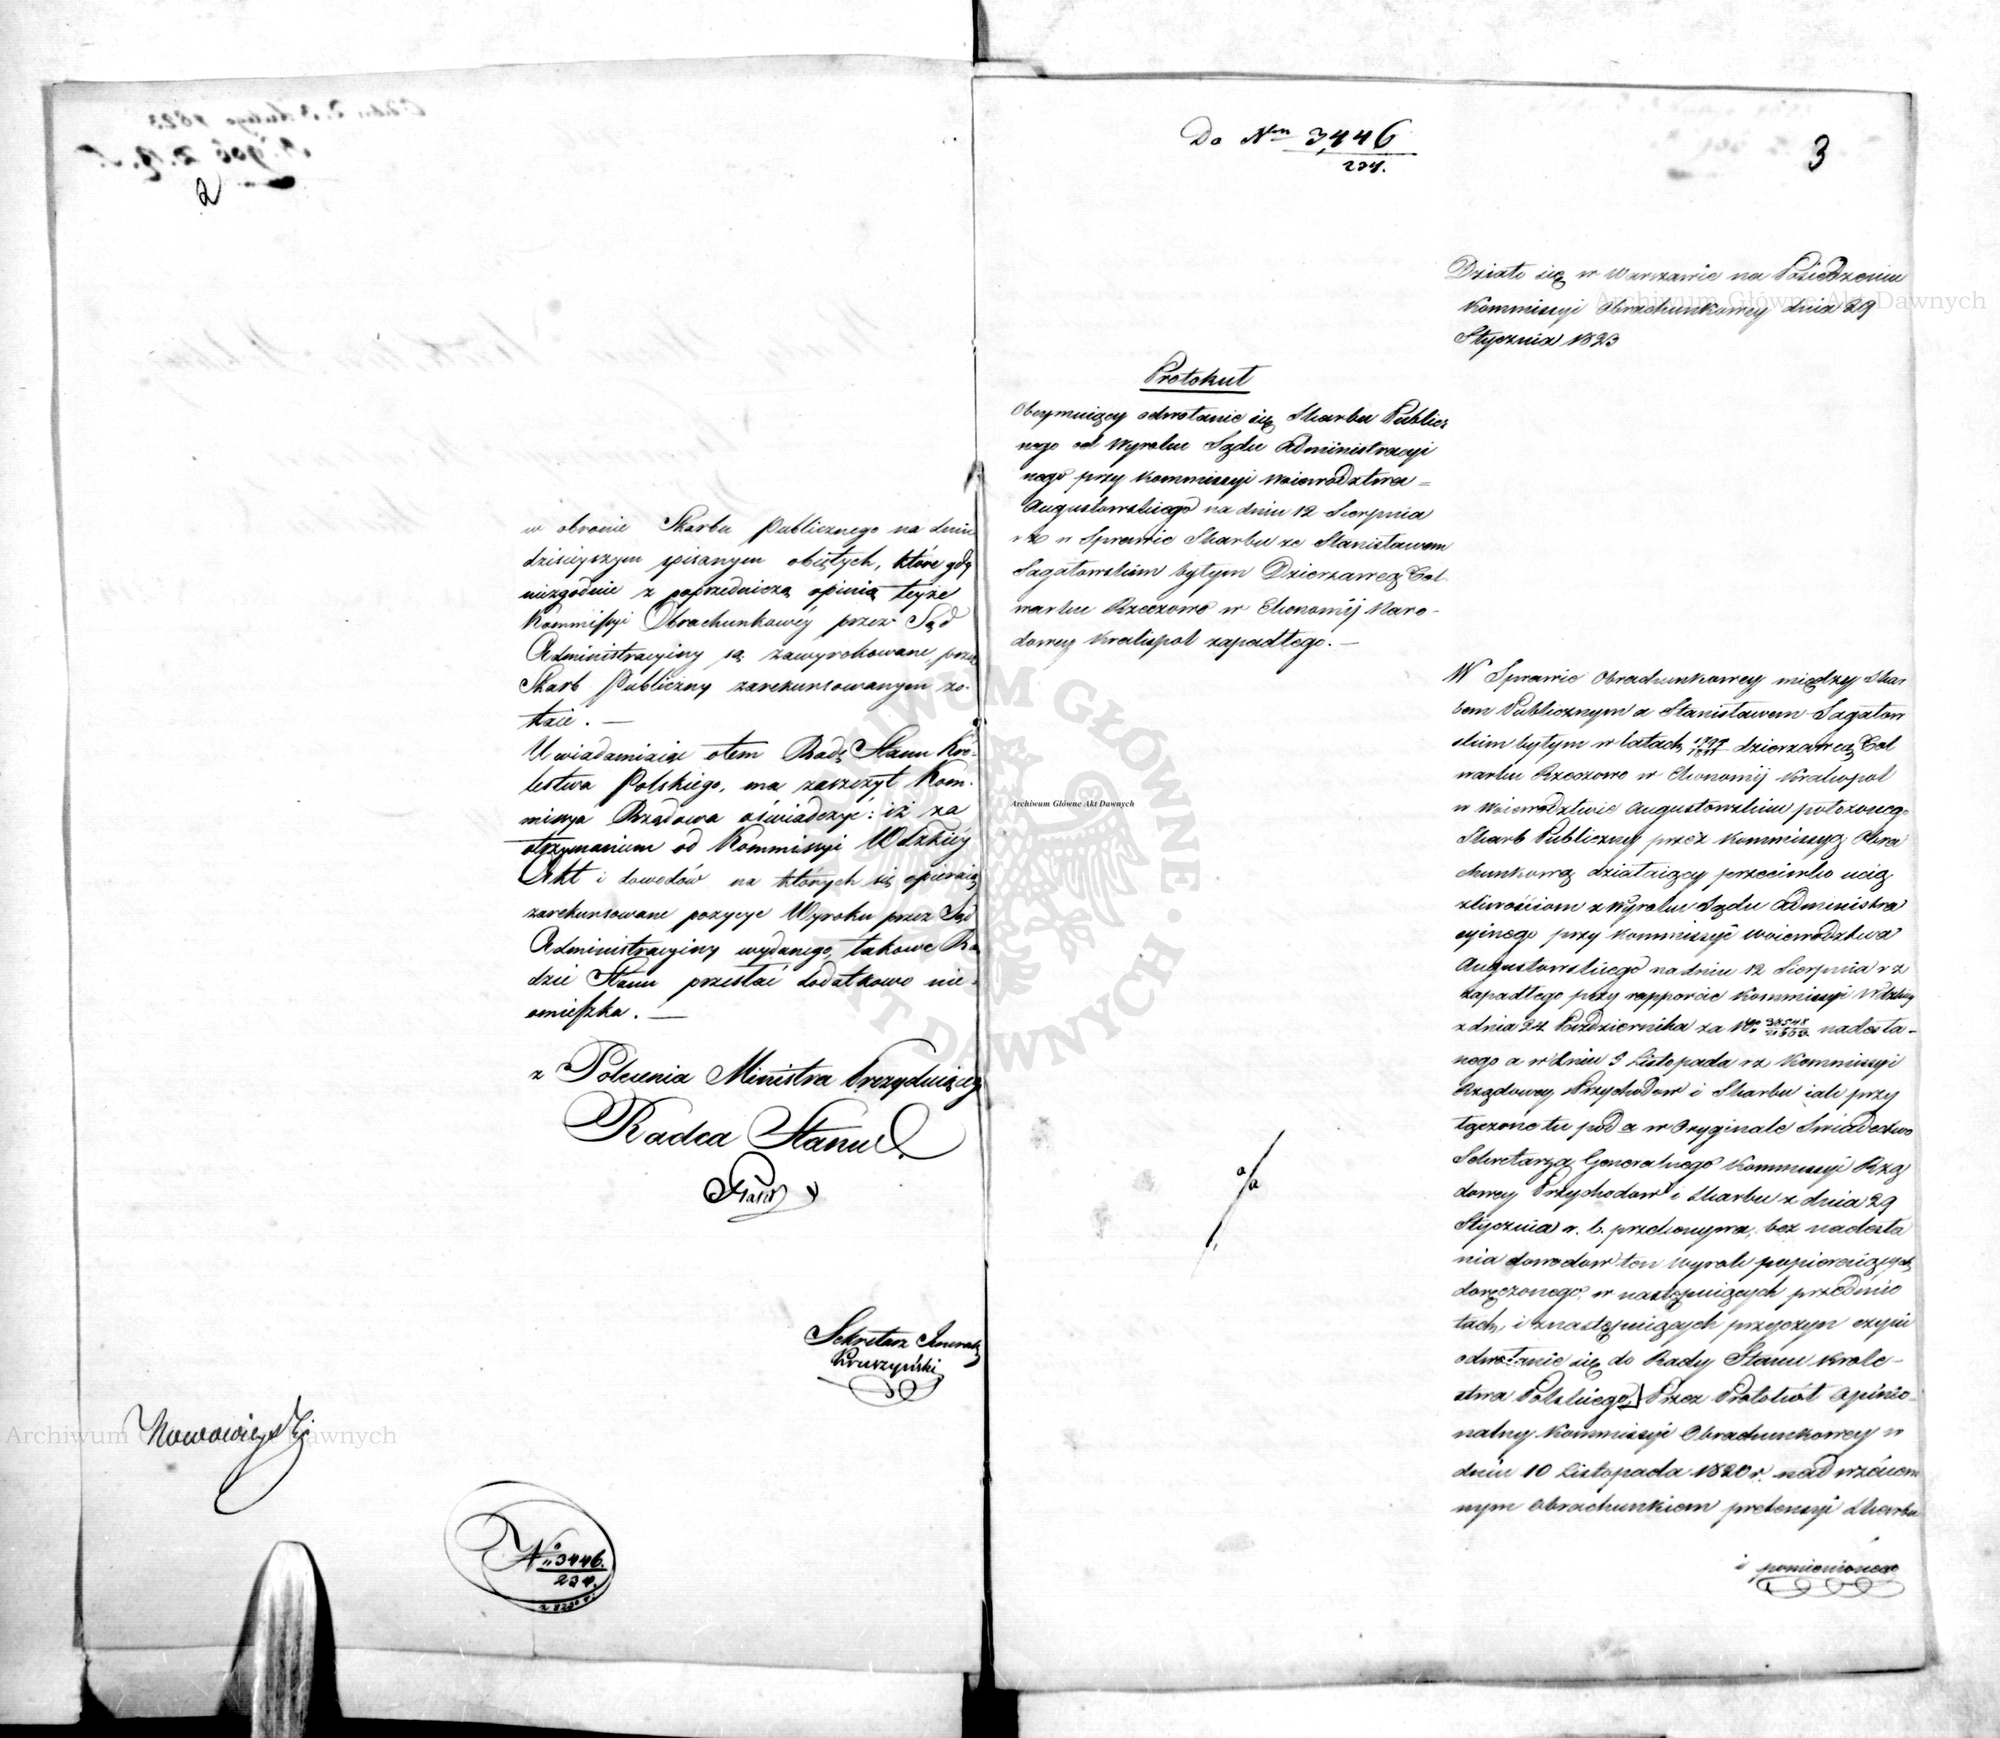 2
w obronie Skarbu Publicznego na dniu
dzisieyszym spisanym obiętych, które gdy
niezgodnie z poprzedniczą opinią teyże
Kommissyi Obrachunkowéy przez Sąd
Administracyiny są zawyrokowane, przez
Skarb Publiczny zarekursowanym zo-
staie. —
Uwiadamiaiąc otem Radę Stanu Kró-
lestwa Polskiego, ma zaszczyt Kom-
missya Rządowa oświadczyć: iż za
otrzymaniem od Kommissyi Wdzkiéy
Akt i dowodów na których się opieraią
zarekursowane pozycye Wyroku przez Sąd
Administracyiny wydanego, takowe Ra
dzie Stanu przesłać dodatkowo nie-
omieszka. —
z Polecenia Ministra Prezyduiącego
Radca Stanu
Sekretarz Jeneralny
Kruszyński
Nowowieyski
No 3446.
234.
Do Nru 3,446
234.
3
Działo się w Warszawie na Posiedzeniu
Kommissyi Obrachunkowey dnia 29
Stycznia 1823
Protokuł
Obeymuiący odwołanie się Skarbu Publicz
nego od Wyroku Sądu Administracyi
nego przy Kommissyi Woiewodztwa =
Augustowskiego na dniu 12 Sierpnia
rz w Sprawie Skarbu ze Stanisławem
Sagatowskim byłym Dzierzawcą Fol-
warku Rzeczowo w Ekonomij Naro-
dowey Kralispol zapadłego. —
W Sprawie Obrachunkowey między Skar
bem Publicznym a Stanisławem Sagatow
skim byłym w latach dzierzawcą Fol
warku Rzeczowo w Ekonomij Kralispol
w Woiewodztwie Augustowskim położonego
Skarb Publiczny przez Kommissyą Obra
chunkową działaiący przeciwko ucią
zliwościom z Wyroku Sądu Administra
cyinego przy Kommissyi Woiewodztwa
Augustowskiego na dniu 12 Sierpnia r z
zapadłego przy rapporcie Kommissyi Wdzkiey
z dnia 24 Pazdziernika za No nadesła-
nego a w dniu 9 Listopada rz Kommissyi
Rządowey Przychodow i Skarbu iak przy
łączone tu pod a w Oryginale Swiadectwo
Sekretarza Generalnego Kommissyi Rzą
dowey Przychodow i Skarbu z dnia 29
Stycznia r. b. przekonywa, bez nadesła
nia dowodow ten wyrok popieraiących
doręczonego, w nastepuiących przedmio
tach, i z nastepuiących przyczyn czyni
odwołanie się do Rady Stanu Krole-
stwa Polskiego. Przez Protokół Opinio-
nalny Kommissyi Obrachunkowey w
dniu 10 Listopada 1820 r. nad wzaiem
nym obrachunkiem pretensyi Skarbu
i pomienionego
a/a
Archiwum Główne Akt Dawnych
Archiwum Główne Akt Dawnych
Archiwum Główne Akt Dawnych
ARCHIWUM GŁÓWNE AKT DAWNYCH